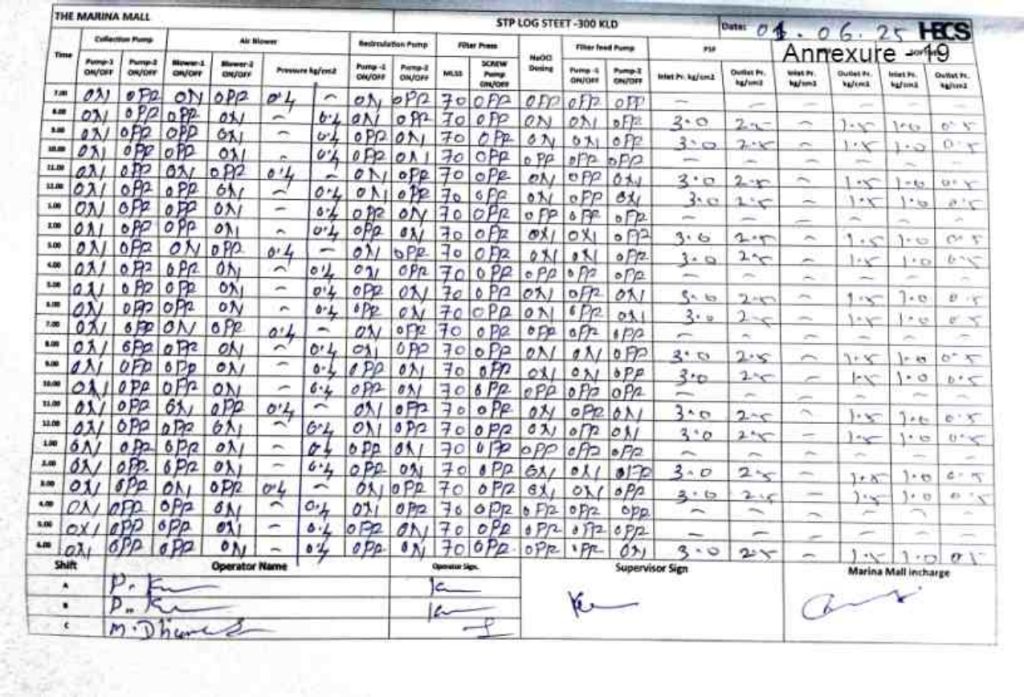 THE MARINA MALL STP LOG STEET -300 KLD Date: 01.06.25 HECS
Annexure - 19
Time Collection Pump Air Blower Recirculation Pump Filter Press NaOCl Dosing Filter feed Pump PSF
Pump-1 ON/OFF Pump-2 ON/OFF Blower-1 ON/OFF Blower-2 ON/OFF Pressure kg/cm2 Pump -1 ON/OFF Pump-2 ON/OFF MLSS SCREW Pump ON/OFF Pump -1 ON/OFF Pump-2 ON/OFF Inlet Pr. kg/cm2 Outlet Pr. kg/cm2 Inlet Pr. kg/cm2 Outlet Pr. kg/cm2 Inlet Pr. kg/cm2 Outlet Pr. kg/cm2
7.00 ON OFF ON OFF 0.4 - ON OFF 70 OFF OFF OFF OFF - - - - - -
8.00 ON OFF OFF ON - 0.4 ON OFF 70 OFF ON ON OFF 3.0 2.5 - 1.5 1.0 0.5
9.00 ON OFF OFF ON - 0.4 OFF ON 70 OFF ON ON OFF 3.0 2.5 - 1.5 1.0 0.5
10.00 ON OFF OFF ON - 0.4 OFF ON 70 OFF OFF OFF OFF - - - - - -
11.00 ON OFF ON OFF 0.4 - ON OFF 70 OFF ON OFF ON 3.0 2.5 - 1.5 1.0 0.5
12.00 ON OFF OFF ON - 0.4 ON OFF 70 OFF ON OFF ON 3.0 2.5 - 1.5 1.0 0.5
1.00 ON OFF OFF ON - 0.4 OFF ON 70 OFF OFF OFF OFF - - - - - -
2.00 ON OFF OFF ON - 0.4 OFF ON 70 OFF ON ON OFF 3.0 2.5 - 1.5 1.0 0.5
3.00 ON OFF ON OFF 0.4 - ON OFF 70 OFF ON ON OFF 3.0 2.5 - 1.5 1.0 0.5
4.00 ON OFF OFF ON - 0.4 ON OFF 70 OFF OFF OFF OFF - - - - - -
5.00 ON OFF OFF ON - 0.4 OFF ON 70 OFF ON OFF ON 3.0 2.5 - 1.5 1.0 0.5
6.00 ON OFF OFF ON - 0.4 OFF ON 70 OFF ON OFF ON 3.0 2.5 - 1.5 1.0 0.5
7.00 ON OFF ON OFF 0.4 - ON OFF 70 OFF OFF OFF OFF - - - - - -
8.00 ON OFF OFF ON - 0.4 ON OFF 70 OFF ON ON OFF 3.0 2.5 - 1.5 1.0 0.5
9.00 ON OFF OFF ON - 0.4 OFF ON 70 OFF ON ON OFF 3.0 2.5 - 1.5 1.0 0.5
10.00 ON OFF OFF ON - 0.4 OFF ON 70 OFF OFF OFF OFF - - - - - -
11.00 ON OFF ON OFF 0.4 - ON OFF 70 OFF ON OFF ON 3.0 2.5 - 1.5 1.0 0.5
12.00 ON OFF OFF ON - 0.4 ON OFF 70 OFF ON OFF ON 3.0 2.5 - 1.5 1.0 0.5
1.00 ON OFF OFF ON - 0.4 OFF ON 70 OFF OFF OFF OFF - - - - - -
2.00 ON OFF OFF ON - 0.4 OFF ON 70 OFF ON ON OFF 3.0 2.5 - 1.5 1.0 0.5
3.00 ON OFF ON OFF 0.4 - ON OFF 70 OFF ON ON OFF 3.0 2.5 - 1.5 1.0 0.5
4.00 ON OFF OFF ON - 0.4 ON OFF 70 OFF OFF OFF OFF - - - - - -
5.00 ON OFF OFF ON - 0.4 OFF ON 70 OFF OFF OFF OFF - - - - - -
6.00 ON OFF OFF ON - 0.4 OFF ON 70 OFF OFF OFF ON 3.0 2.5 - 1.5 1.0 0.5
Shift Operator Name Operator Sign. Supervisor Sign Marina Mall Incharge
A P.
B P.
C M.